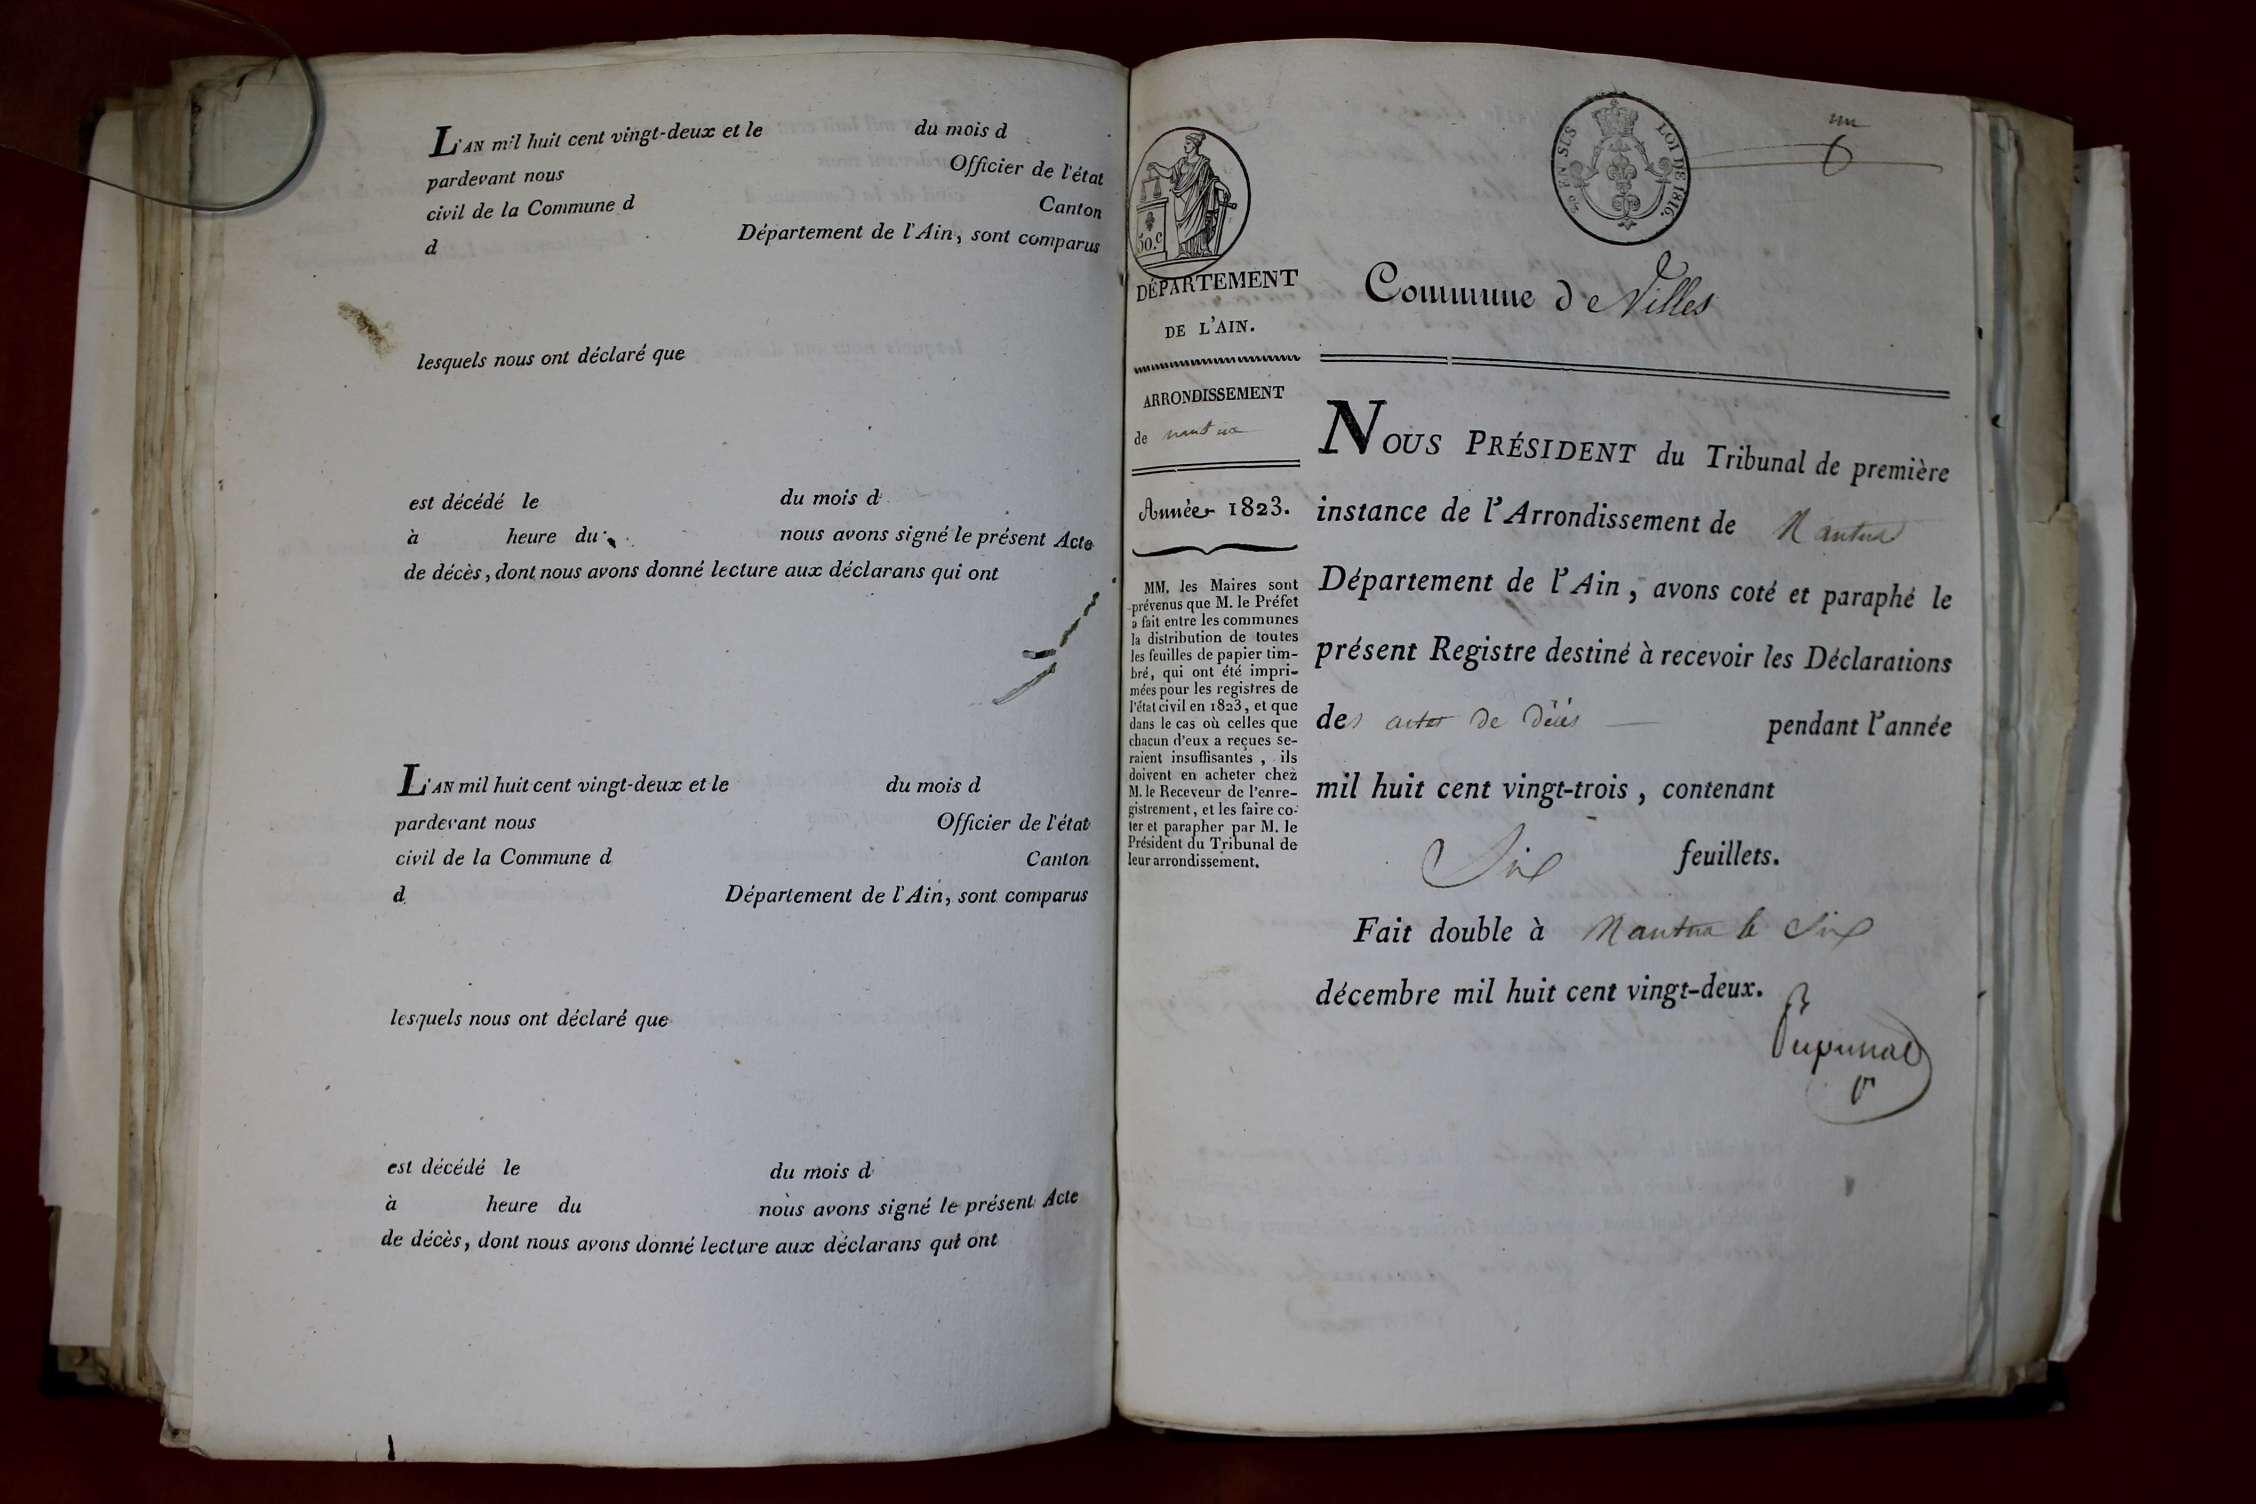 L'AN mil huit cent vingt-deux et le du mois d
pardevant nous Officier de l'état
civil de la Commune d Canton
d Département de l'Ain, sont comparus
lesquels nous ont déclaré que
est décédé le du mois d
à heure du nous avons signé le présent Acte
de décès, dont nous avons donné lecture aux déclarans qui ont
L'AN mil huit cent vingt-deux et le du mois d
pardevant nous Officier de l'état
civil de la Commune d Canton
d Département de l'Ain, sont comparus
lesquels nous ont déclaré que
est décédé le du mois d
à heure du nous avons signé le présent Acte
de décès, dont nous avons donné lecture aux déclarans qui ont
50.c
DÉPARTEMENT
DE L'AIN.
ARRONDISSEMENT
de nantua
Année 1823.
MM. les Maires sont
prévenus que M. le Préfet
a fait entre les communes
la distribution de toutes
les feuilles de papier tim-
bré, qui ont été impri-
mées pour les registres de
l'état civil en 1823, et que
dans le cas où celles que
chacun d'eux a reçues se-
raient insuffisantes, ils
doivent en acheter chez
M. le Receveur de l'enre-
gistrement, et les faire co-
ter et parapher par M. le
Président du Tribunal de
leur arrondissement.
EN SUS LOI DE 1816.
un
6
Commune de Villes
NOUS PRÉSIDENT du Tribunal de première
instance de l'Arrondissement de Nantua
Département de l'Ain, avons coté et paraphé le
présent Registre destiné à recevoir les Déclarations
des actes de décés pendant l'année
mil huit cent vingt-trois, contenant
Six feuillets.
Fait double à Nantua le Six
décembre mil huit cent vingt-deux.